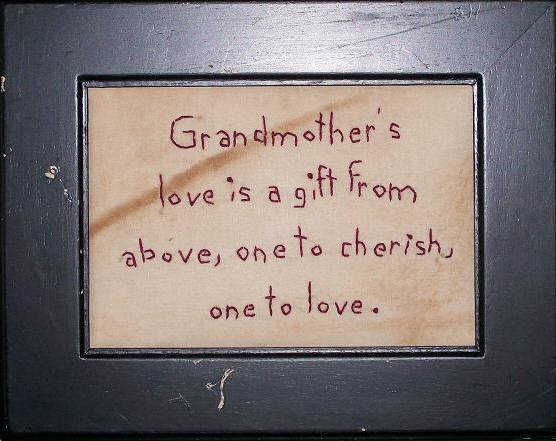 Grandmother's
love is a gift from
above, one to cherish,
one to love.